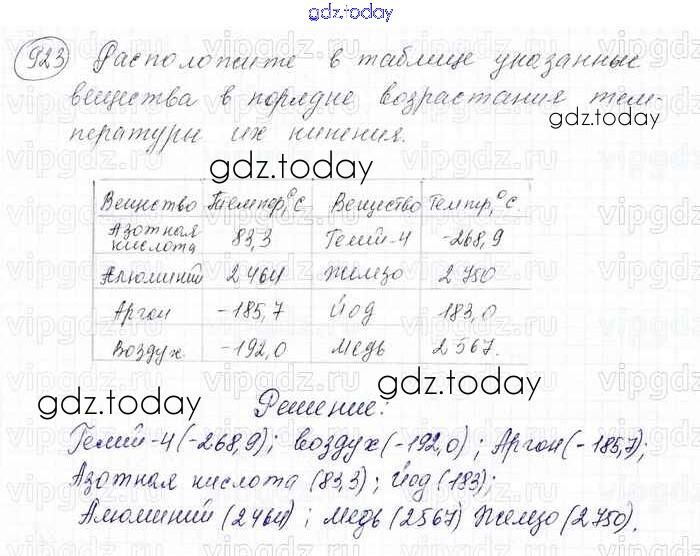 gdz.today
923 Расположите в таблице указанные
вещества в порядке возрастания тем-
gdz.today
пературы их кипения.
gdz.today
Вещество Темпер,°С Вещество Темпер,°С
Азотная кислота 83,3 Гелий-4 -268,9
Алюминий 2464 Железо 2750
Аргон -185,7 Йод 183,0
Воздух -192,0 Медь 2567.
gdz.today
gdz.today
Решение:
Гелий-4(-268,9); воздух(-192,0); Аргон(-185,7);
Азотная кислота (83,3); Йод (183);
gdz.today
Алюминий (2464); медь (2567) Железо (2750).